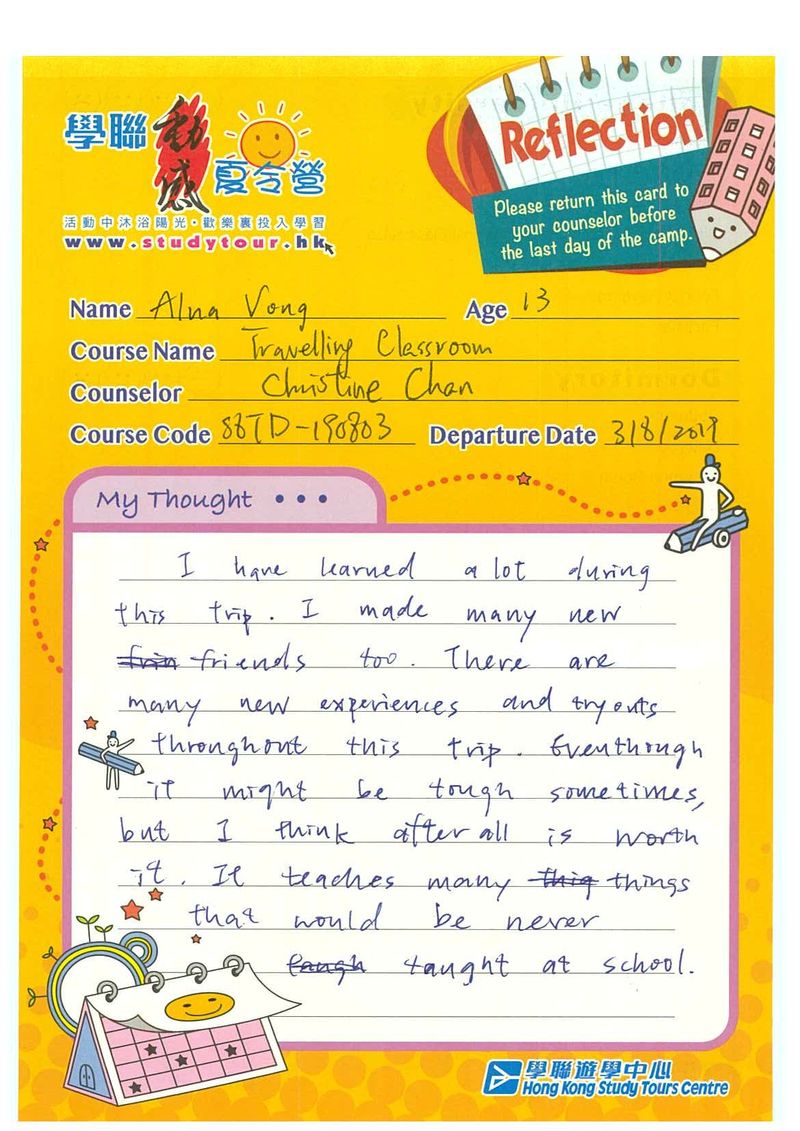 學聯 動感 夏令營
活動中沐浴陽光・歡樂裏投入學習
www.studytour.hk
Reflection
Please return this card to
your counselor before
the last day of the camp.
Name Alna Vong Age 13
Course Name Travelling Classroom
Counselor Christine Chan
Course Code 88TD-190803 Departure Date 3/8/2019
My Thought • • •
I have learned a lot during
this trip. I made many new
frin friends too. There are
many new experiences and try outs
throughout this trip. Eventhough
it might be tough sometimes,
but I think after all is worth
it. It teaches many thig things
that would be never
taugh taught at school.
學聯遊學中心
Hong Kong Study Tours Centre